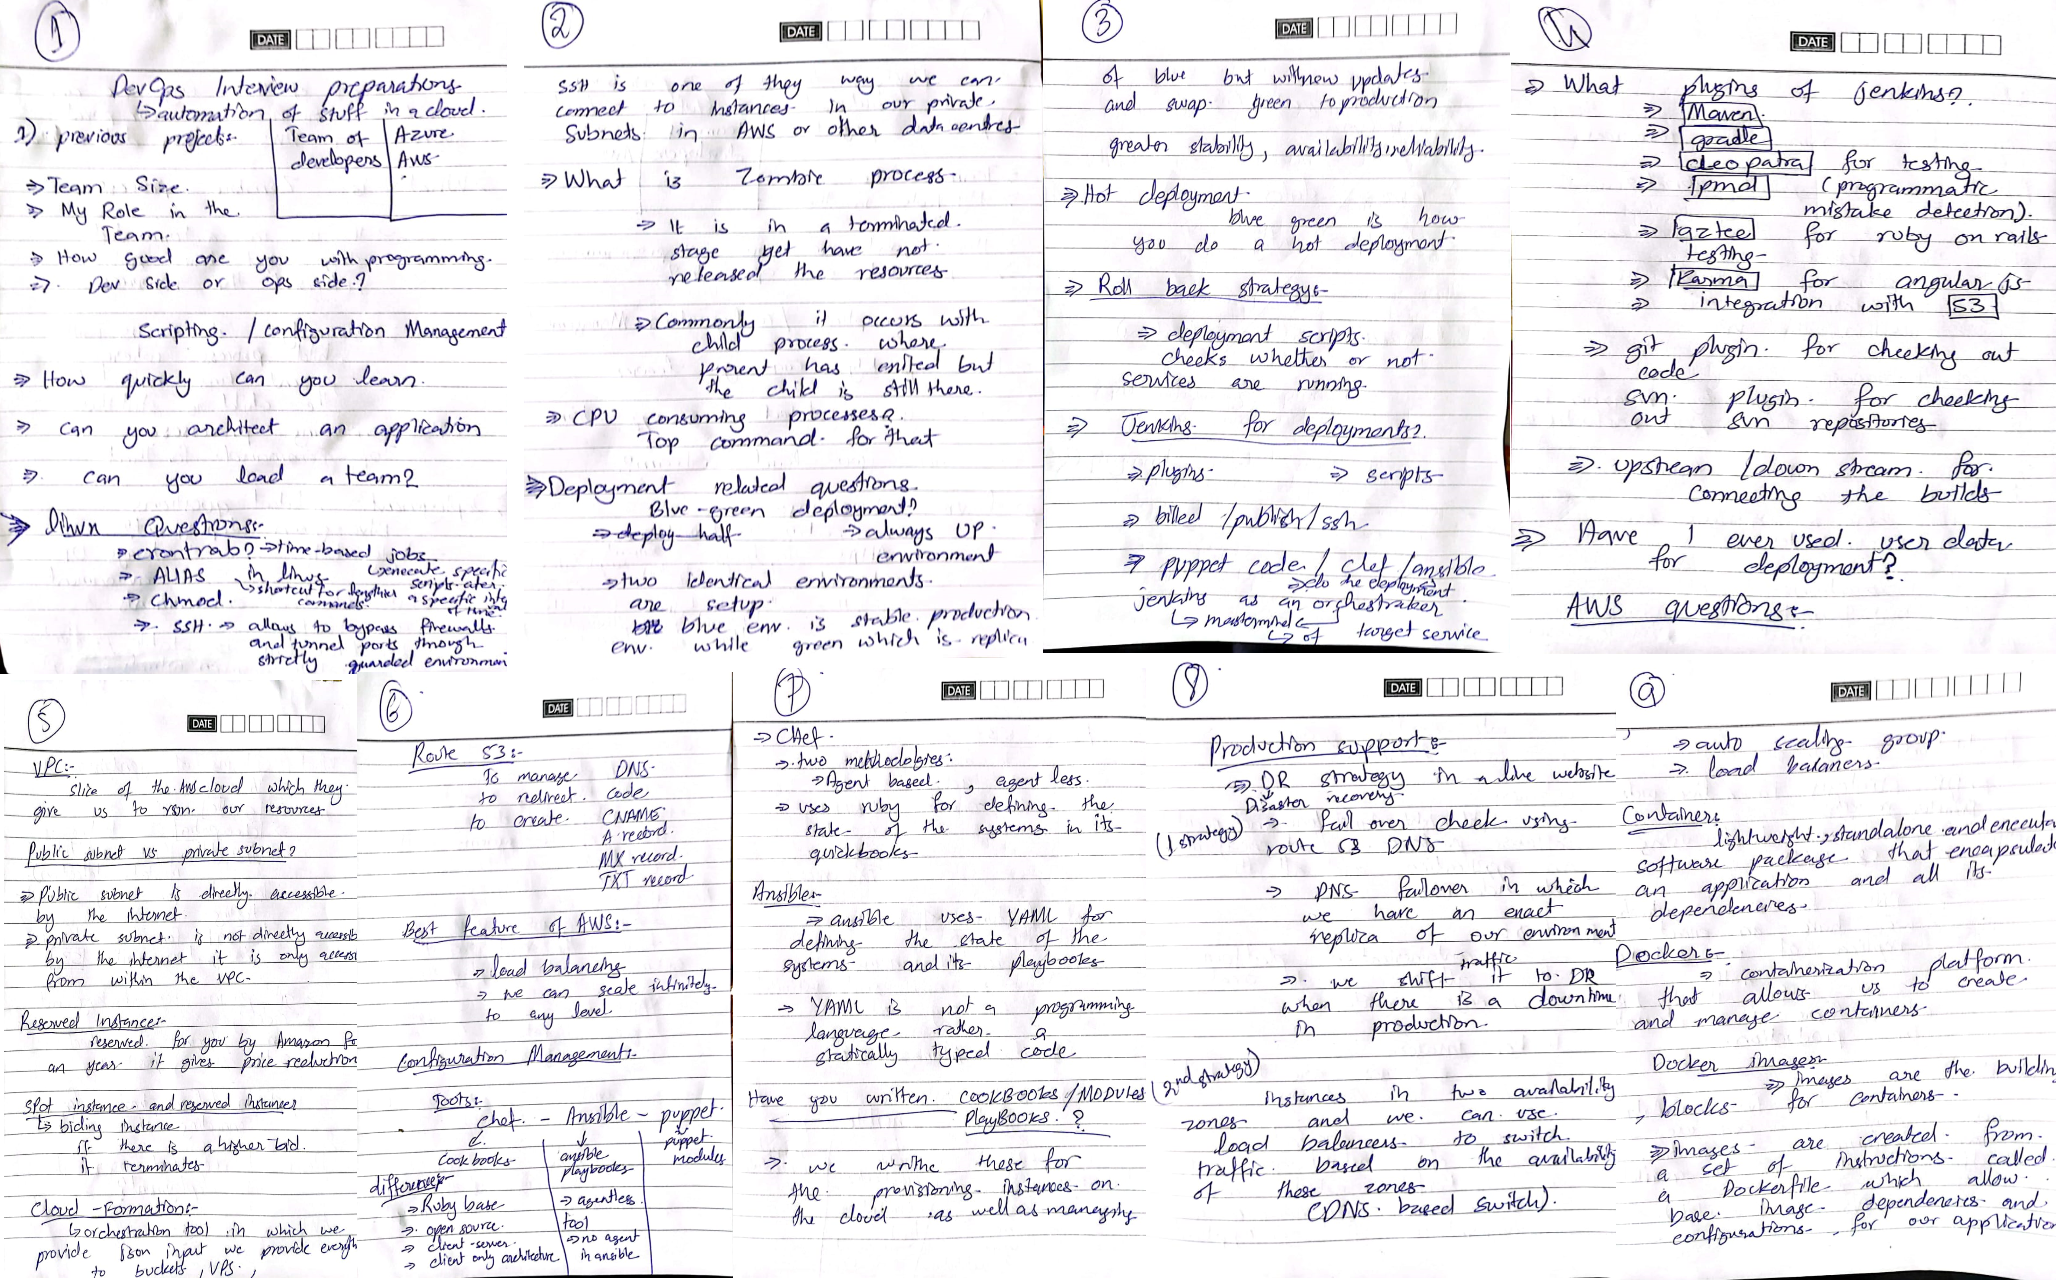 1
DATE
DevOps Interview preparations
↳automation of stuff in a cloud.
1) previous projects:-
Team of developers | Azure Aws
⇒ Team Size.
⇒ My Role in the
Team.
⇒ How good are you with programming.
⇒ Dev side or ops side?
Scripting. / configuration Management
⇒ How quickly can you learn.
⇒ can you architect an application
⇒ can you lead a team?
⇒ linux Questions:-
⇒ crontab? → time-based jobs
↳execute specific
scripts after
a specific
of time
⇒ ALIAS in linux
↳shortcut for
commands
⇒ Chmod.
⇒ SSH → allows to bypass firewalls
and tunnel ports through
strictly guarded environmen
2
DATE
SSH is one of they way we can
connect to instances in our private
Subnets in AWS or other data centres
⇒ What is Zombie process-
⇒ It is in a terminated.
stage yet have not
released the resources
⇒ Commonly it occurs with
child process. where
parent has exited but
the child is still there.
⇒ CPU consuming processes?
Top command. for that
⇒ Deployment related questions.
Blue-green deployment?
⇒ deploy half ⇒ always UP.
environment
⇒ two identical environments.
are setup.
blue env. is stable production
env. while green which is replica
3
DATE
of blue but with new updates
and swap green to production
greater stability, availability, reliability.
⇒ Hot deployment-
blue green is how
you do a hot deployment
⇒ Roll back strategy:-
⇒ deployment scripts.
checks whether or not.
services are running.
⇒ Jenkins for deployments?
⇒ plugins- ⇒ scripts-
⇒ billed /publish/ssh
⇒ puppet code / clef /ansible
⇒do the deployment
jenkins as an orchestraker
↳ of target service
4
DATE
⇒ What plugins of jenkins?
⇒ Maven.
⇒ gradle
⇒ cleopatra for testing
⇒ pmd (programmatic
mistake detection).
⇒ for ruby on rails
testing-
⇒ Karma for angular js-
⇒ integration with S3
⇒ git plugin. for checking out
code
svn. plugin. for checking
out svn repositories-
⇒ upstream /down stream. for.
connecting the builds
⇒ Have I ever used. user data
for deployment?
AWS questions:-
5
DATE
VPC:-
slice of the AWS cloud which they
give us to our resources
Public subnet vs private subnet?
⇒ Public subnet is directly accessible.
by the internet.
⇒ private subnet. is not directly accessib
by the internet it is only access
from within the VPC-
Reserved Instances-
reserved. for you by Amazon fo
an year. it gives price reduction
Spot instance- and reserved instances
↳ biding instance
if there is a higher-bid.
it terminates
Cloud-Formation:-
↳orchestration tool in which we
provide json input we provide everyth
to buckets, VPS,
6
DATE
Route 53:-
To manage DNS.
to redirect. code
to create. CNAME
A record.
MX record.
TXT record
Best feature of AWS:-
⇒ load balancing
⇒ we can scale infinitely-
to any level
Configuration Management:-
Tools:-
chef. - Ansible - puppet.
Cookbooks | ansible playbooks | puppet modules
differences
⇒ Ruby base | ⇒ agentless
⇒ open source. | tool
⇒ client-server. | ⇒ no agent
⇒ client only architecture | in ansible
7
DATE
⇒ Chef.
⇒ two methodologies:
⇒ Agent based. , agent less.
⇒ uses ruby for defining the
state of the systems in its
quickbooks
Ansible:-
⇒ ansible uses YAML for
defining the state of the
systems and its playbooks
→ YAML is not a programming
language rather a
statically typed code
Have you written. COOKBOOKS/MODULES
PlayBooks.?
⇒ we writhe these for
the provisioning instances on
the cloud as well as managing
8
DATE
Production support:-
⇒ DR strategy in a live website
Disaster recovery
(1 strategy) ⇒ fail over check using
route 53 DNS
⇒ DNS failover in which
we have an exact
replica of our environment
traffic
⇒ we shift it to DR
when there is a downtime
in production
(2nd strategy)
instances in two availability
zones and we can use
load balancers to switch
traffic based on the availability
of these zones
(DNS based switch).
9
DATE
⇒ auto scaling group.
⇒ load balaners-
Container:
lightweight, standalone and executa
software package that encapsulate
an application and all its
dependencies-
Docker:-
⇒ containerization platform.
that allows us to create
and manage containers
Docker images:-
⇒ images are the buildin
blocks for containers.
⇒ images- are created from.
a set of instructions called
a Dockerfile which allow.
base image dependencies and
configurations for our application